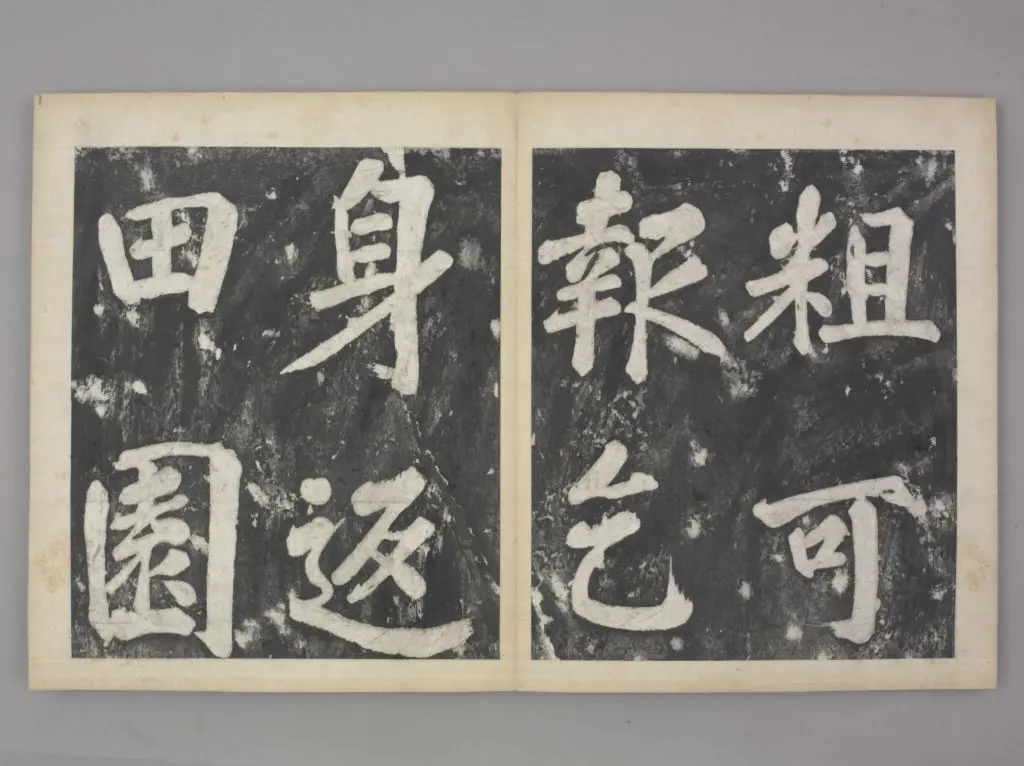 粗可
報乞
身返
田園